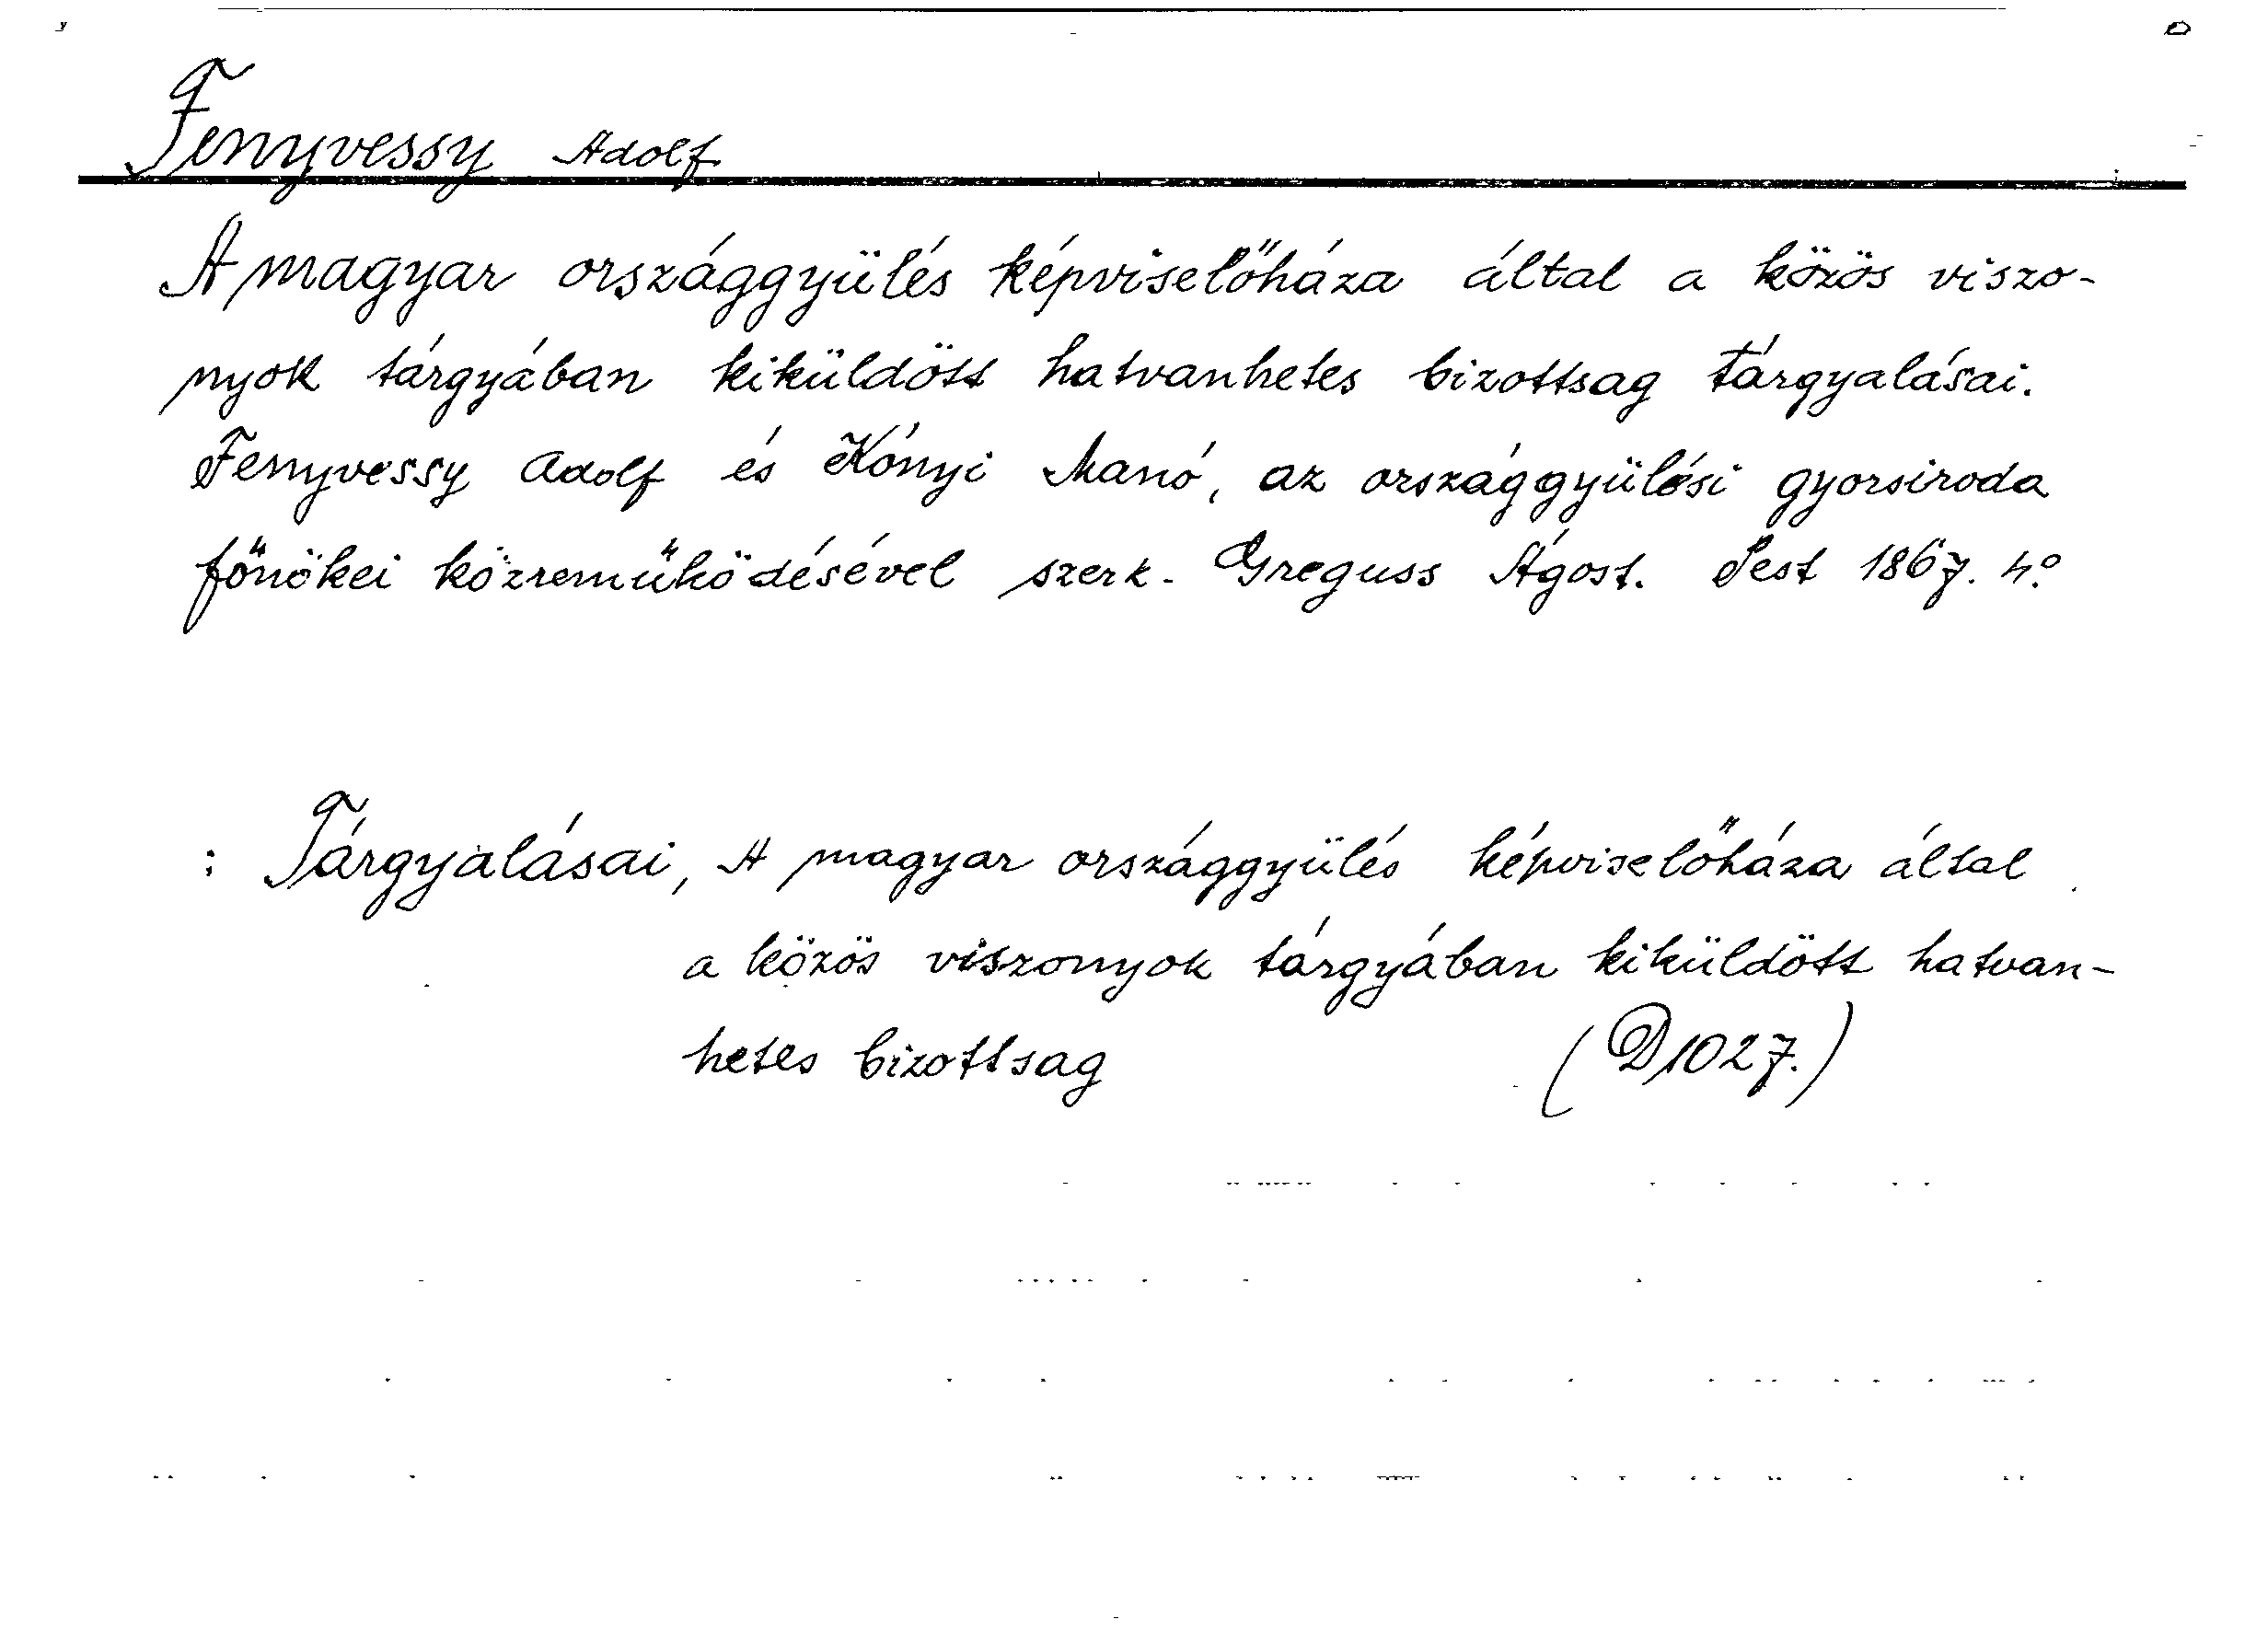 Fenyvessy Adolf
A magyar országgyülés képviselőháza által a közös viszo-
nyok tárgyában kiküldött hatvanhetes bizottsag tárgyalásai.
Fenyvessy Adolf és Kónyi Manó, az országgyülési gyorsiroda
főnökei közreműködésével szerk. Greguss Ágost. Pest 1867. 4°
: Tárgyalásai, A magyar országgyülés képviselőháza által
a közös viszonyok tárgyában kiküldött hatvan-
hetes bizottsag (D1027.)